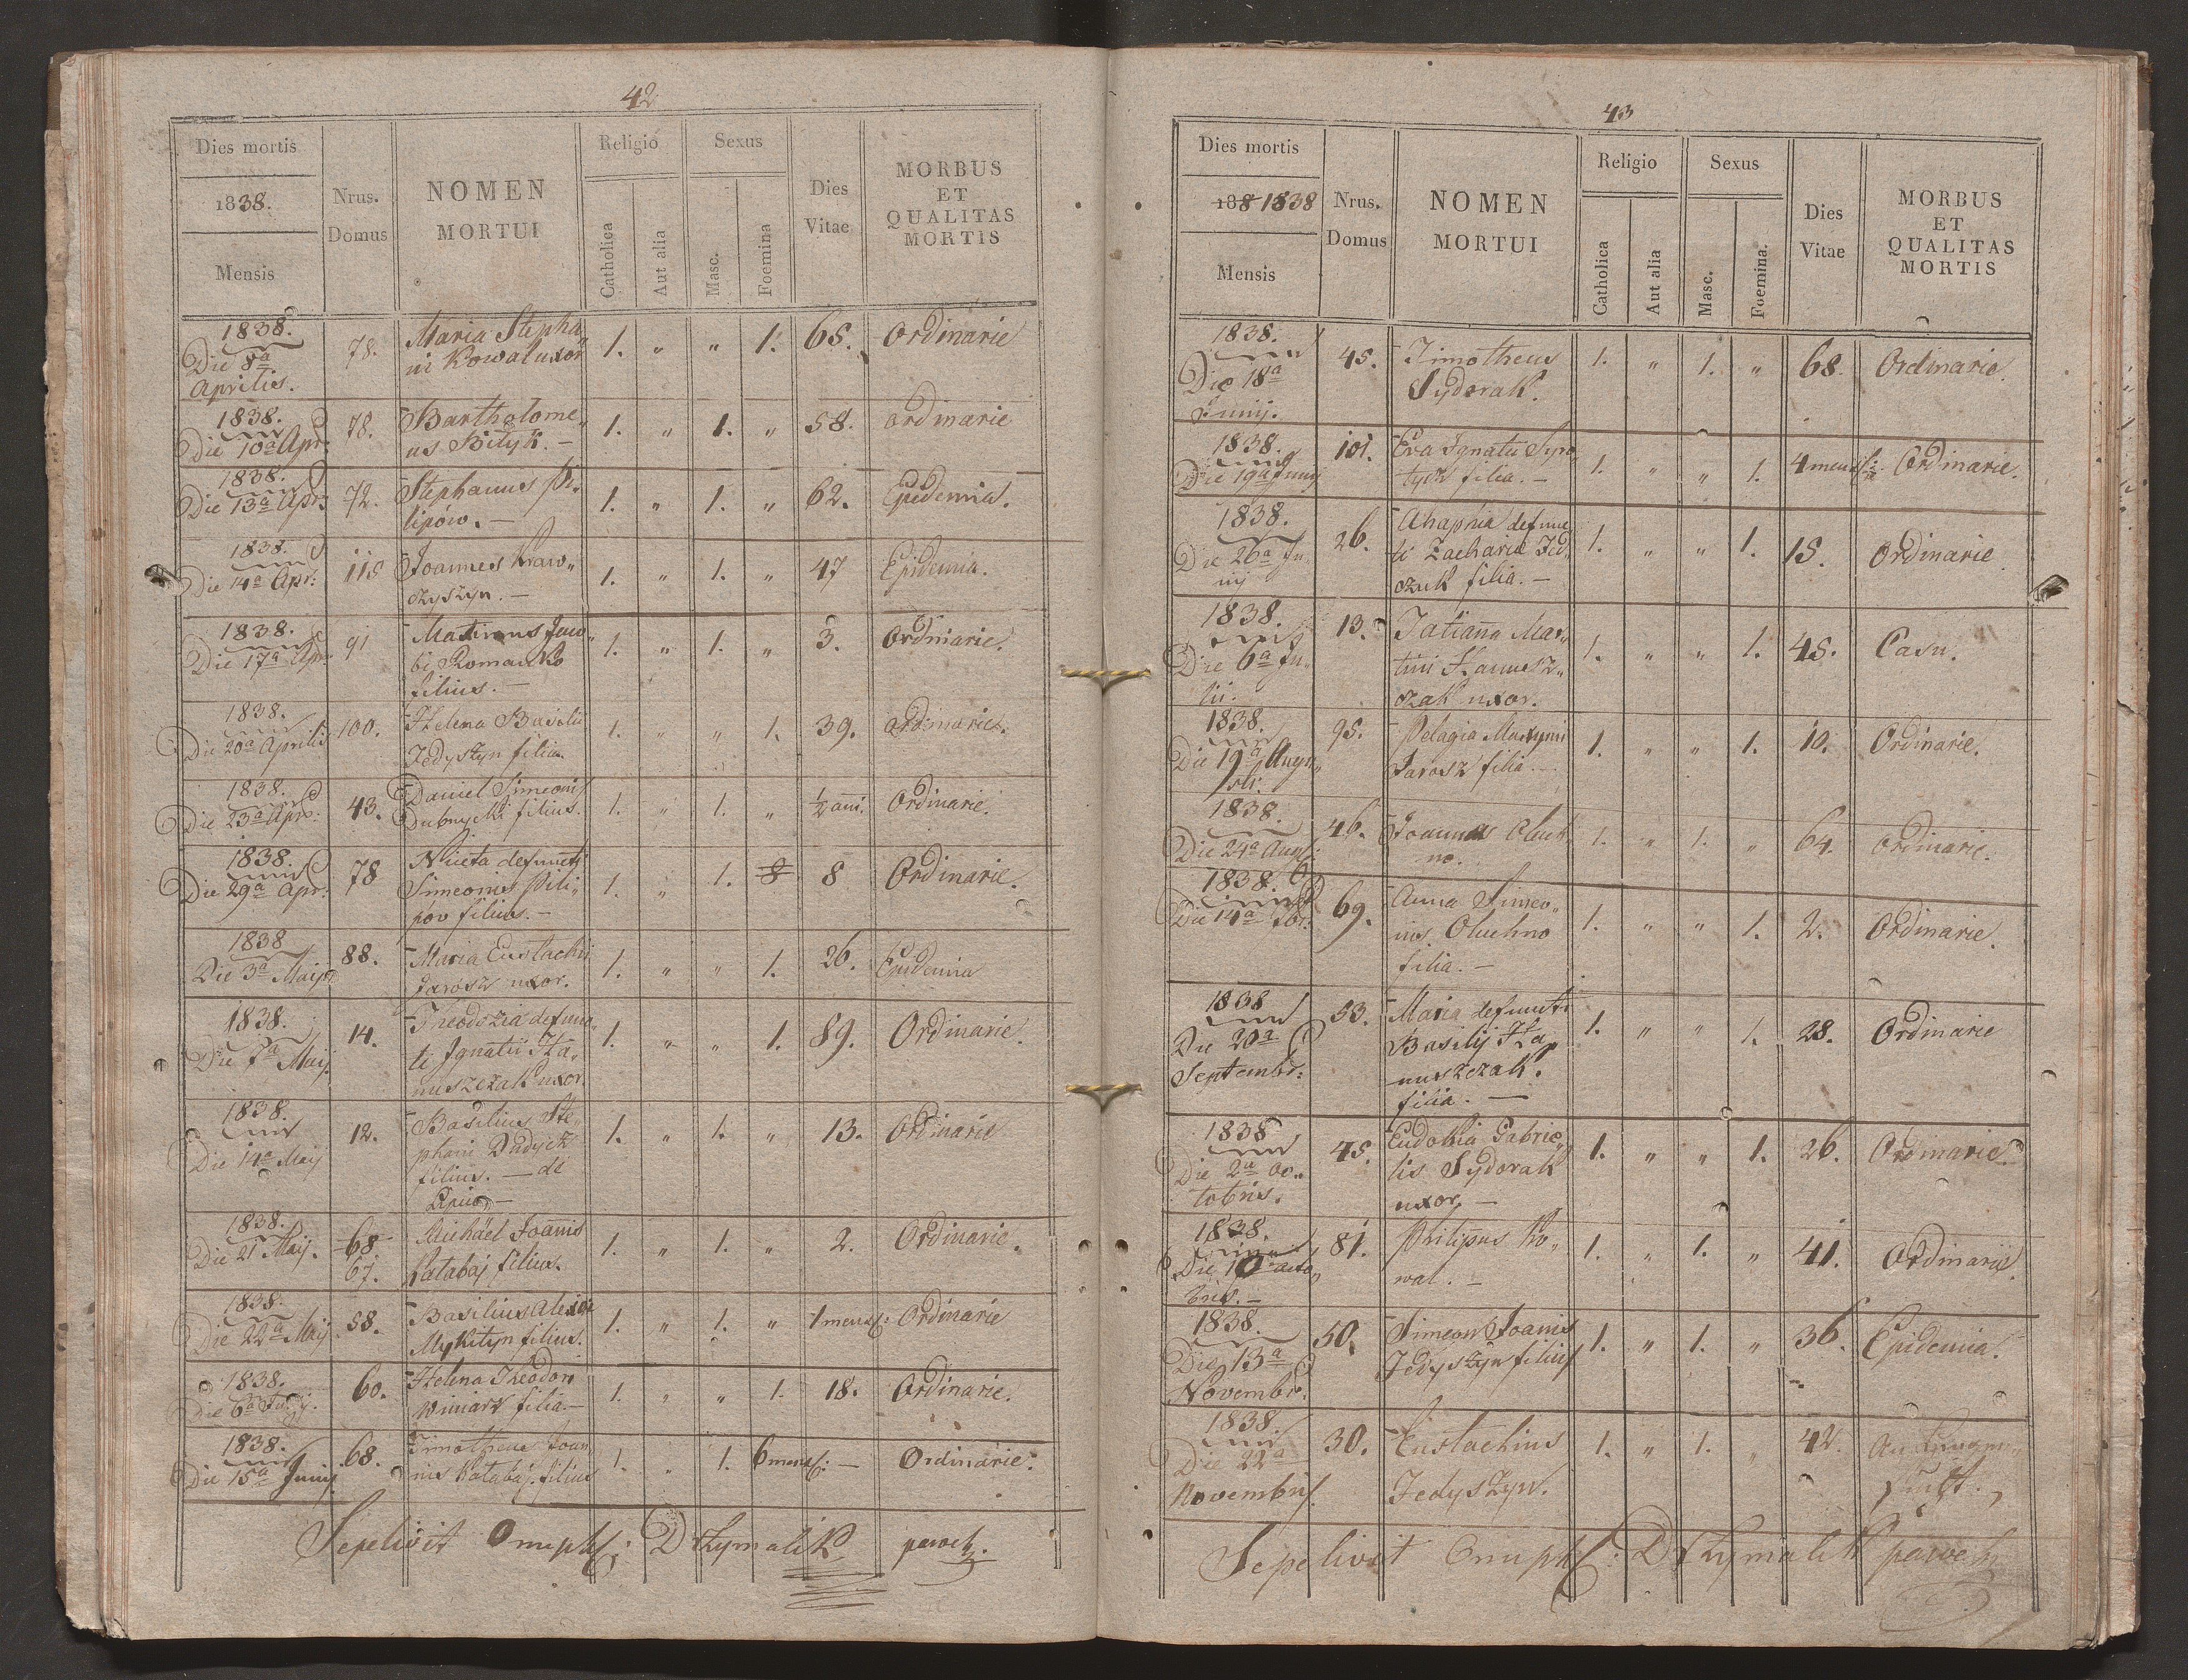 42
Dies mortis
1838.
Mensis
Nrus.
Domus
NOMEN
MORTUI
Religio
Catholica
Aut alia
Sexus
Masc.
Foemina
Dies
Vitae
MORBUS
ET
QUALITAS
MORTIS
1838.
Die 8a
Aprilis.
78.
Maria Stepha„
ni Kowal uxor
1. „ „ 1. 65. Ordinarie
1838.
Die 10a Apr:
78.
Bartholome„
us Bilyk. –
1. „ 1. „ 58. ordinarie
1838.
Die 13a Apr:
72.
Stephanus Pi„
lipów. –
1. „ 1. „ 62. Epidemia.
1838.
Die 14a Apr:
115
Joannes Kraw„
czyszyn. –
1. „ 1. „ 47 Epidemia.
1838.
Die 17a Apr:
91
Maximus Jaco„
bi Romanko
filius. –
1. „ 1. „ 3. Ordinarie.
1838.
Die 20a Aprilis
100.
Helena Basilii
Fedyszyn filia.
1. „ „ 1. 39. ordinarie.
1838.
Die 23a Apr:
43.
Daniel Simeonis
Dubnycki filius.
1. „ 1. „ ½ ani. Ordinarie.
1838.
Die 29a Apr:
78
Niceta defuncti
Simeonis Pili„
pów filius. –
1. „ 1. 8 8 Ordinarie.
1838
Die 3a Maij
88.
Maria Eustachii
Jarosz uxor.
1. „ „ 1. 26. Epidemia
1838.
Die 7a Maij
14.
Theodozia defunc„
ti Ignatii Ha„
nuszczak uxor.
1. „ „ 1. 89. Ordinarie.
1838.
Die 14a Maij
12.
Basilius Ste„
phani Dadycz
filius. – de
1. „ 1. „ 13. Ordinarie
1838.
Die 21 Maij.
68.
67.
Michael Joanis
Batabaj filius.
1. „ 1. „ 2. Ordinarie.
1838.
Die 22a Maij
58.
Basilius Alexii
Mykityn filius.
1. „ 1. „ 1 mens: Ordinarie
1838.
Die 6a Junij.
60.
Helena Theodori
Winiarz filia. –
1. „ „ 1. 18. Ordinarie.
1838.
Die 15a Junij.
68.
Timotheus Joan„
nis Batabaj filius
1. „ 1. 6 mens: – Ordinarie.
Sepelivit Onuph: Dżymalik paroch.
43
Dies mortis
188 1838
Mensis
Nrus.
Domus
NOMEN
MORTUI
Religio
Catholica
Aut alia
Sexus
Masc.
Foemina.
Dies
Vitae
MORBUS
ET
QUALITAS
MORTIS
1838.
Die 18a
Junij.
45.
Timotheus
Sydorak.
1. „ 1. „ 68. Ordinarie.
1838.
Die 19a Junij
101.
Eva Ignatii Syro„
tycz filia. –
1. „ „ 1. 4 mens: Ordinarie.
1838.
Die 26a Ju„
nij
26.
Ahaphia defunc„
ti Zachariae Fed„
czuk filia. –
1. „ „ 1. 15. Ordinarie.
1838.
Die 6a Ju„
lii.
13.
Tatianna Mar„
tini Hanusz„
czak uxor.
1. „ „ 1. 45. Casu.
1838.
Die 19a Augu„
sti.
95.
Pelagia Maxymi
Jarosz filia. –
1. „ „ 1. 10. Ordinarie.
1838.
Die 24a Aug:
46.
Joannes Oluch„
no.
1. „ 1. „ 64. ordinarie.
1838.
Die 14a 7br:
69.
Anna Simeo„
nis Oluchno
filia. –
1. „ „ 1. 2. Ordinarie.
1838
Die 20a
Septembr:
53.
Maria defuncti
Basilij Ha„
nuszczak.
filia. –
1. „ „ 1. 28. Ordinarie
1838
Die 2a Oc„
tobris.
45.
Eudokia Gabrie„
lis Sydorak
uxor. –
1. „ „ 1. 26. Ordinarie.
1838.
Die 10 octo„
bris. –
81.
Philipus Ko„
wal. –
1. „ 1. „ 41. Ordinarie.
1838.
Die 13a
Novembr.
50.
Simeon Joanis
Fedyszyn filius
1. „ 1. „ 36. Epidemia.
1838.
Die 22a
Novembris.
30.
Eustachius
Fedyszyn.
1. „ 1. „ 42.
Sepelivit Onuph: Dżymalik paroch